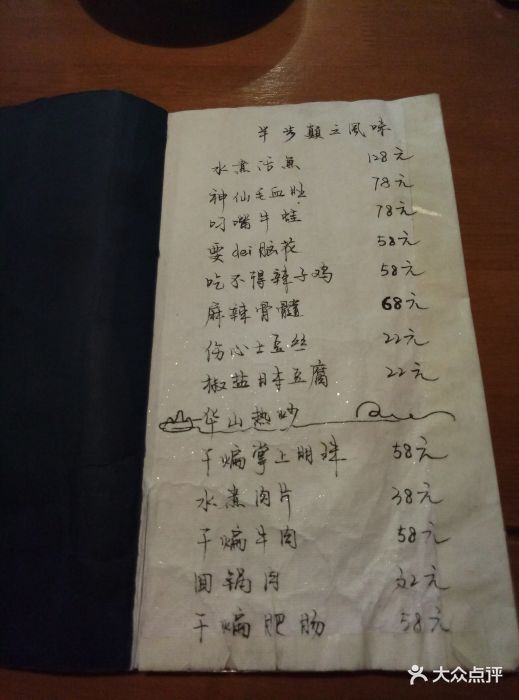 半步颠之风味
水煮活鱼 128元
神仙毛血旺 78元
叼嘴牛蛙 78元
耍dei脑花 58元
吃不得辣子鸡 58元
麻辣骨髓 68元
伤心土豆丝 22元
椒盐日本豆腐 22元
华山热炒
干煸掌上明珠 58元
水煮肉片 38元
干煸牛肉 58元
回锅肉 32元
干煸肥肠 58元
大众点评